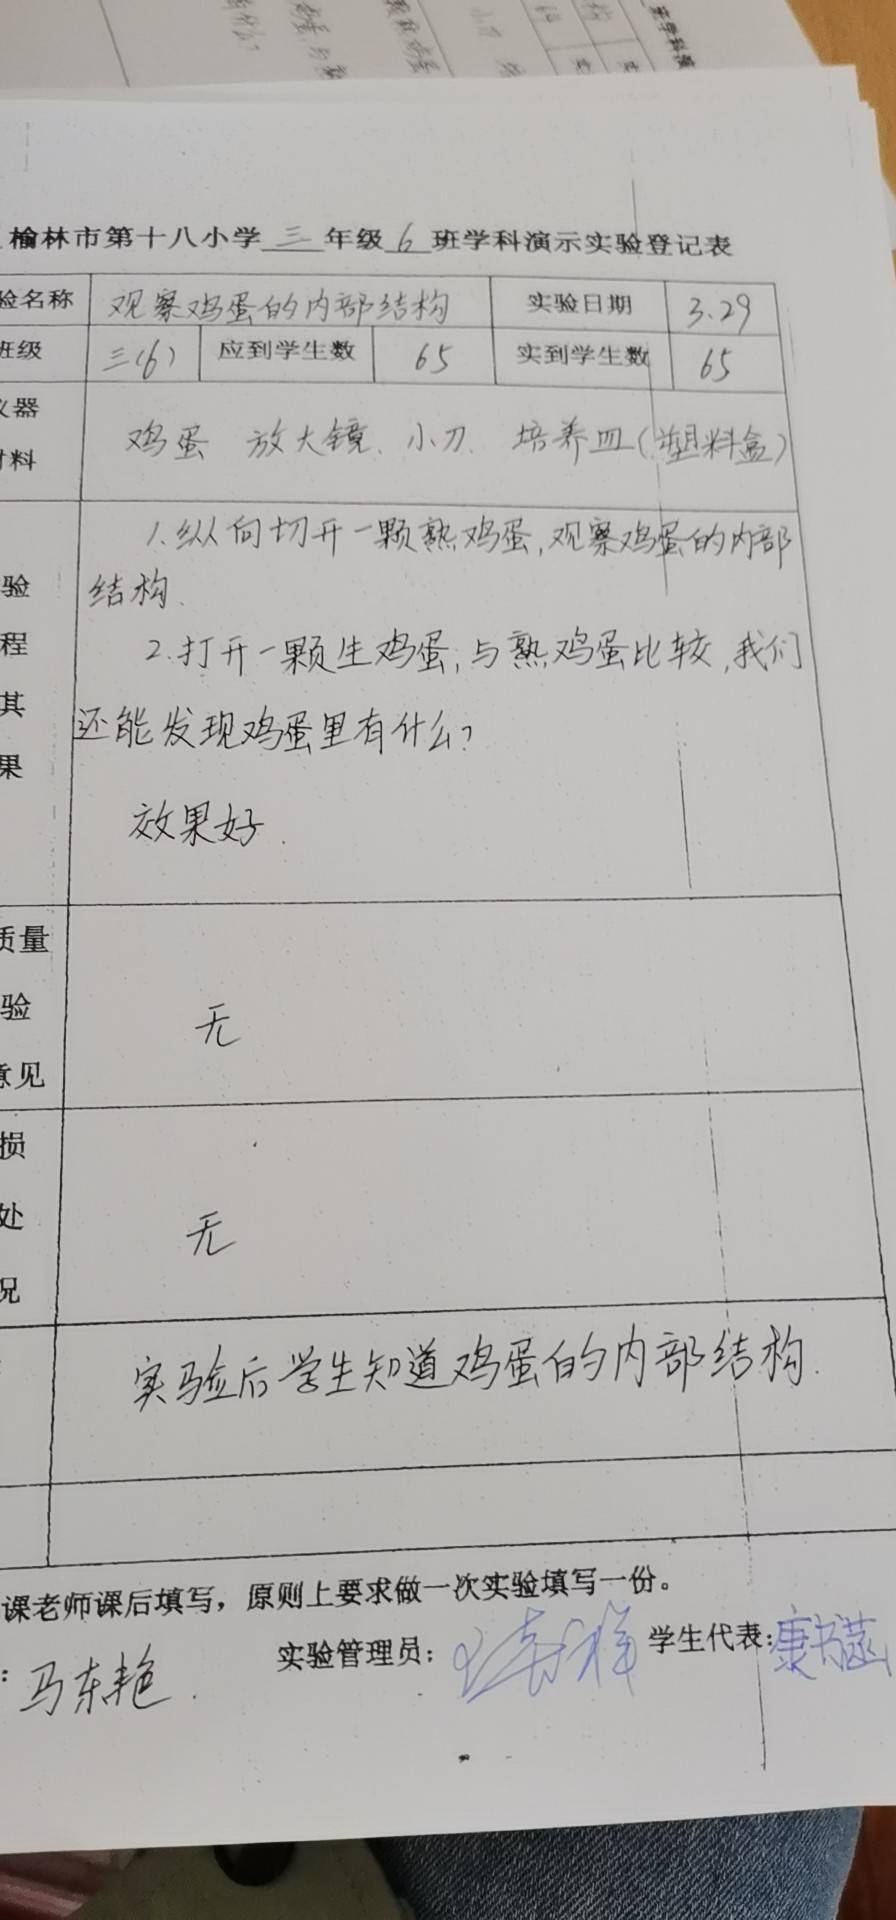 榆林市第十八小学三年级6班学科演示实验登记表
验名称 观察鸡蛋的内部结构 实验日期 3.29
班级 三(6) 应到学生数 65 实到学生数 65
仪器
材料
鸡蛋 放大镜、小刀、培养皿(塑料盒)
1.纵向切开一颗熟鸡蛋,观察鸡蛋的内部
结构.
2.打开一颗生鸡蛋,与熟鸡蛋比较,我们
还能发现鸡蛋里有什么?
效果好.
验
程
其
果
质量
验
意见
无
损
处
况
无
实验后学生知道鸡蛋的内部结构.
课老师课后填写，原则上要求做一次实验填写一份。
：马东艳. 实验管理员： 学生代表：康